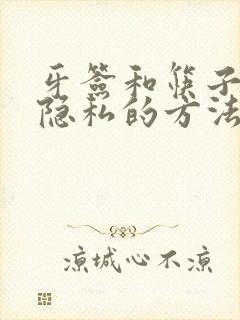 牙签和筷子
隐私的方法
凉城心不凉